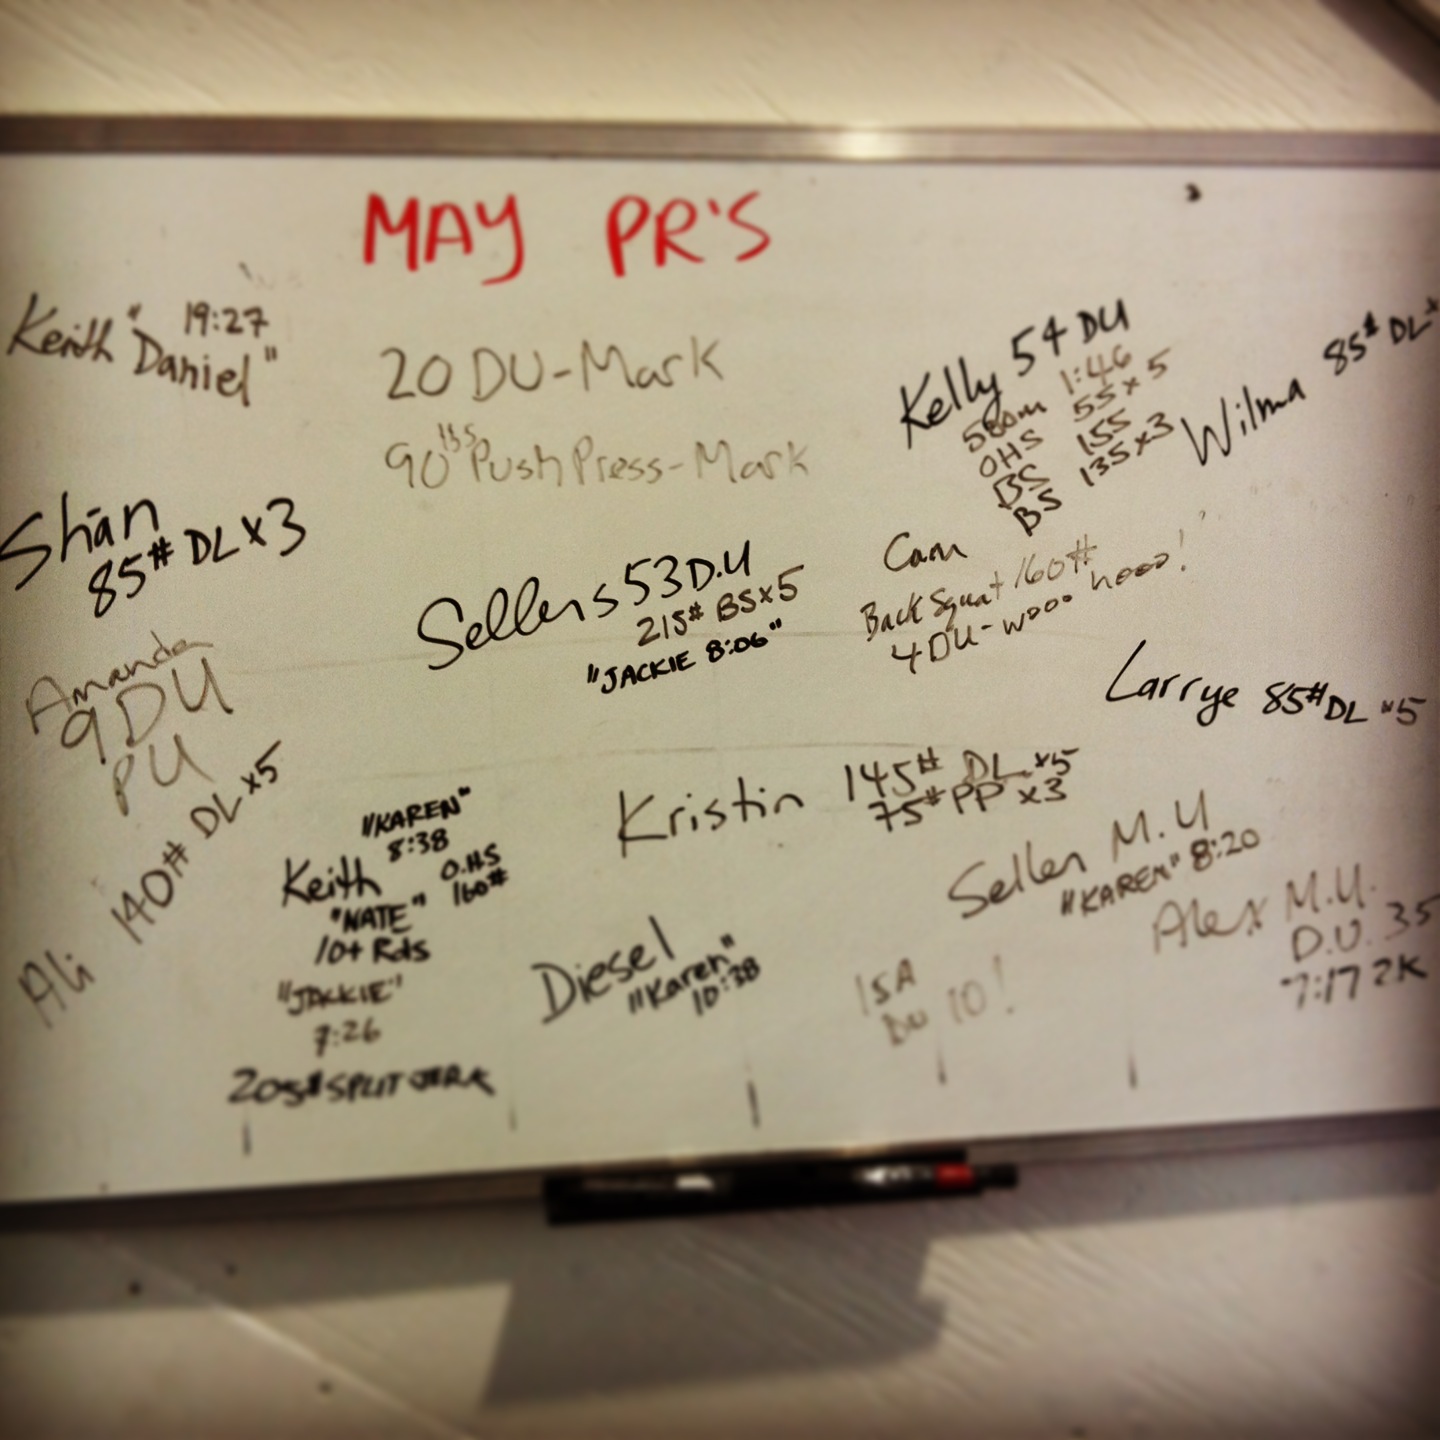 MAY PR'S
Keith "Daniel" 19:27
20 DU-Mark
90 lbs Push Press-Mark
Kelly 54 DU
500m 1:46
OHS 55x5
BS 155
BS 135x3
Wilma 85# DL x
Shan
85# DL x3
Sellers 53 D.U
215# BS x5
"JACKIE 8:06"
Cam
Back Squat 160#
4 DU - wooo hooo!
Larrye 85# DL x5
Amanda
9 DU
PU
Ali 140# DL x5
Kristin 145# DL x5
75# PP x3
"KAREN"
8:38
Keith O.H.S
160#
"NATE"
10+ Rds
"JACKIE"
7:26
205# SPLIT JERK
Diesel
"Karen"
10:38
Seller M.U
"KAREN" 8:20
Alex M.U.
D.U. 35
7:17 2K
ISA
DU 10!